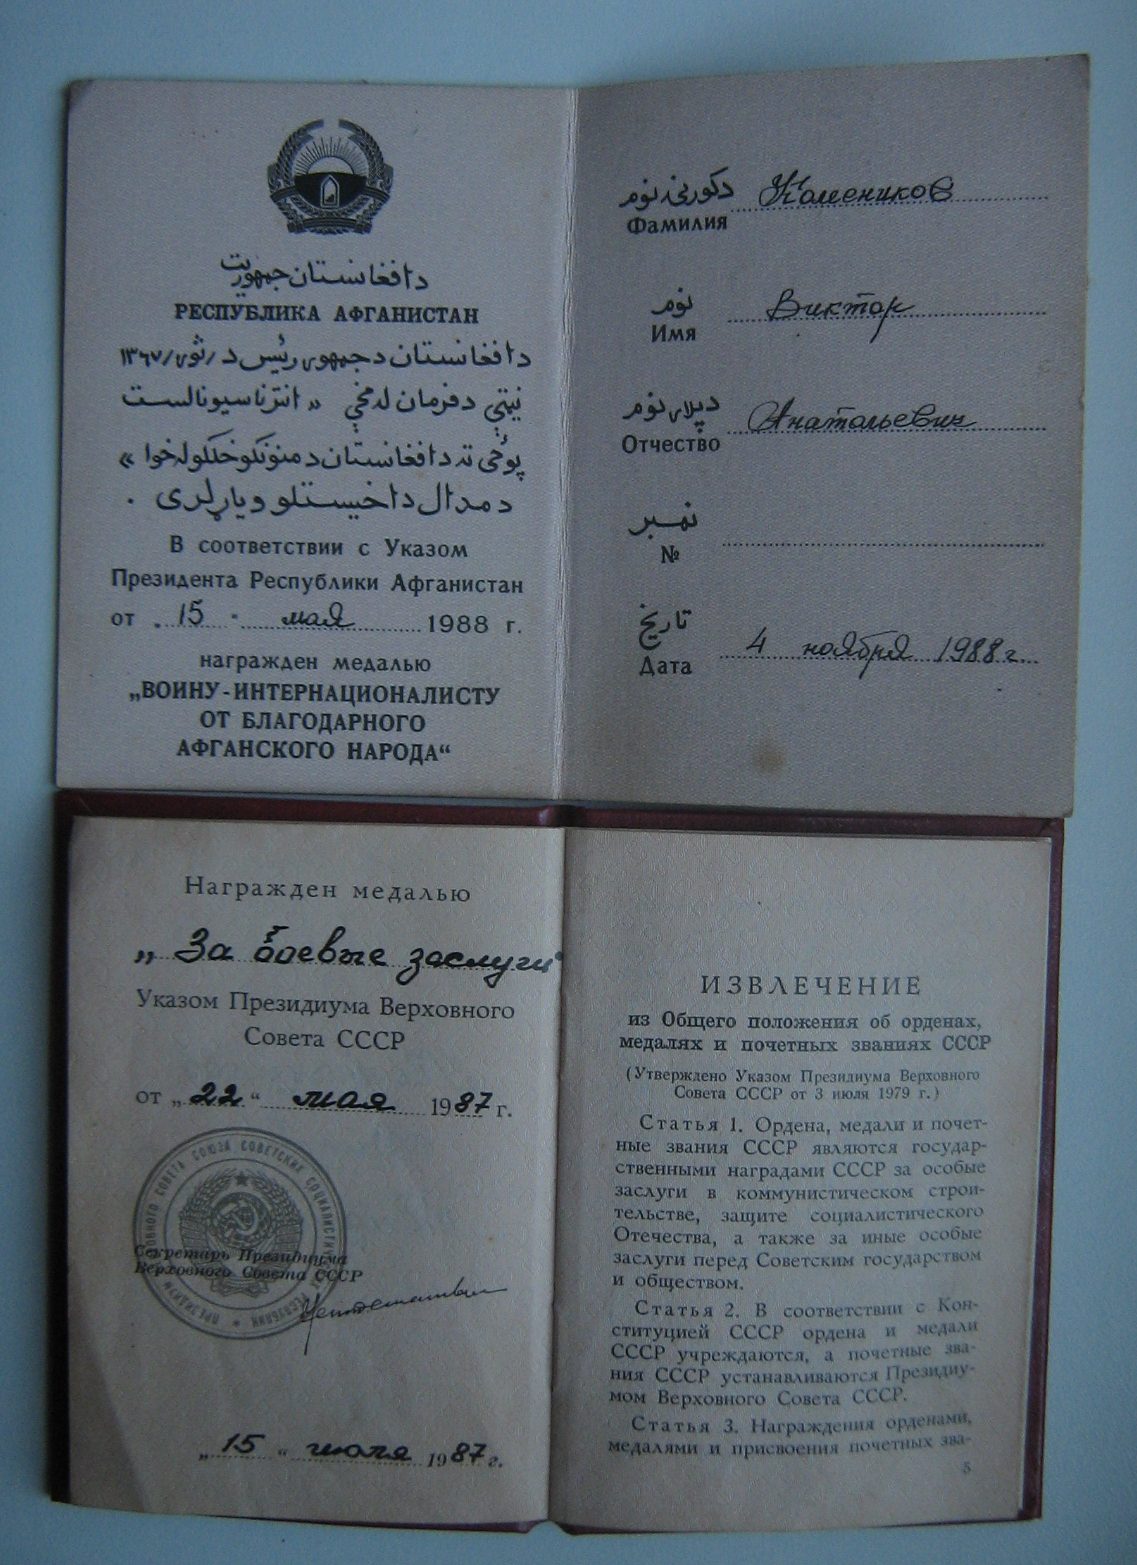 د افغانستان جمهوريت
РЕСПУБЛИКА АФГАНИСТАН
د افغانستان د جمهوری رئیس د /ثور/ ۱۳۶۷
نیټې د فرمان له مخې « انترناسیونالست
پوځي ته د افغانستان د مننونکو خلکو له خوا »
د مدال د اخیستلو ویاړ لری .
В соответствии с Указом
Президента Республики Афганистан
от „ 15 “ мая 1988 г.
награжден медалью
„ВОИНУ-ИНТЕРНАЦИОНАЛИСТУ
ОТ БЛАГОДАРНОГО
АФГАНСКОГО НАРОДА“
د کورنی نوم
Фамилия Камеников
نوم
Имя Виктор
د پلار نوم
Отчество Анатольевич
نمبر
№
تاریخ
Дата 4 ноября 1988г.
Награжден медалью
„За боевые заслуги“
Указом Президиума Верховного
Совета СССР
от „22“ мая 1987 г.
Секретарь Президиума
Верховного Совета СССР
„15“ июля 1987 г.
ИЗВЛЕЧЕНИЕ
из Общего положения об орденах,
медалях и почетных званиях СССР
(Утверждено Указом Президиума Верховного
Совета СССР от 3 июля 1979 г.)
Статья 1. Ордена, медали и почет-
ные звания СССР являются государ-
ственными наградами СССР за особые
заслуги в коммунистическом строи-
тельстве, защите социалистического
Отечества, а также за иные особые
заслуги перед Советским государством
и обществом.
Статья 2. В соответствии с Кон-
ституцией СССР ордена и медали
СССР учреждаются, а почетные зва-
ния СССР устанавливаются Президиу-
мом Верховного Совета СССР.
Статья 3. Награждения орденами,
медалями и присвоения почетных зва-
5